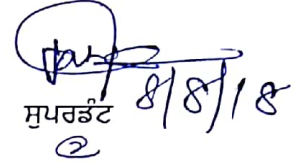 ਸੁਪਰਡੰਟ 8/8/18